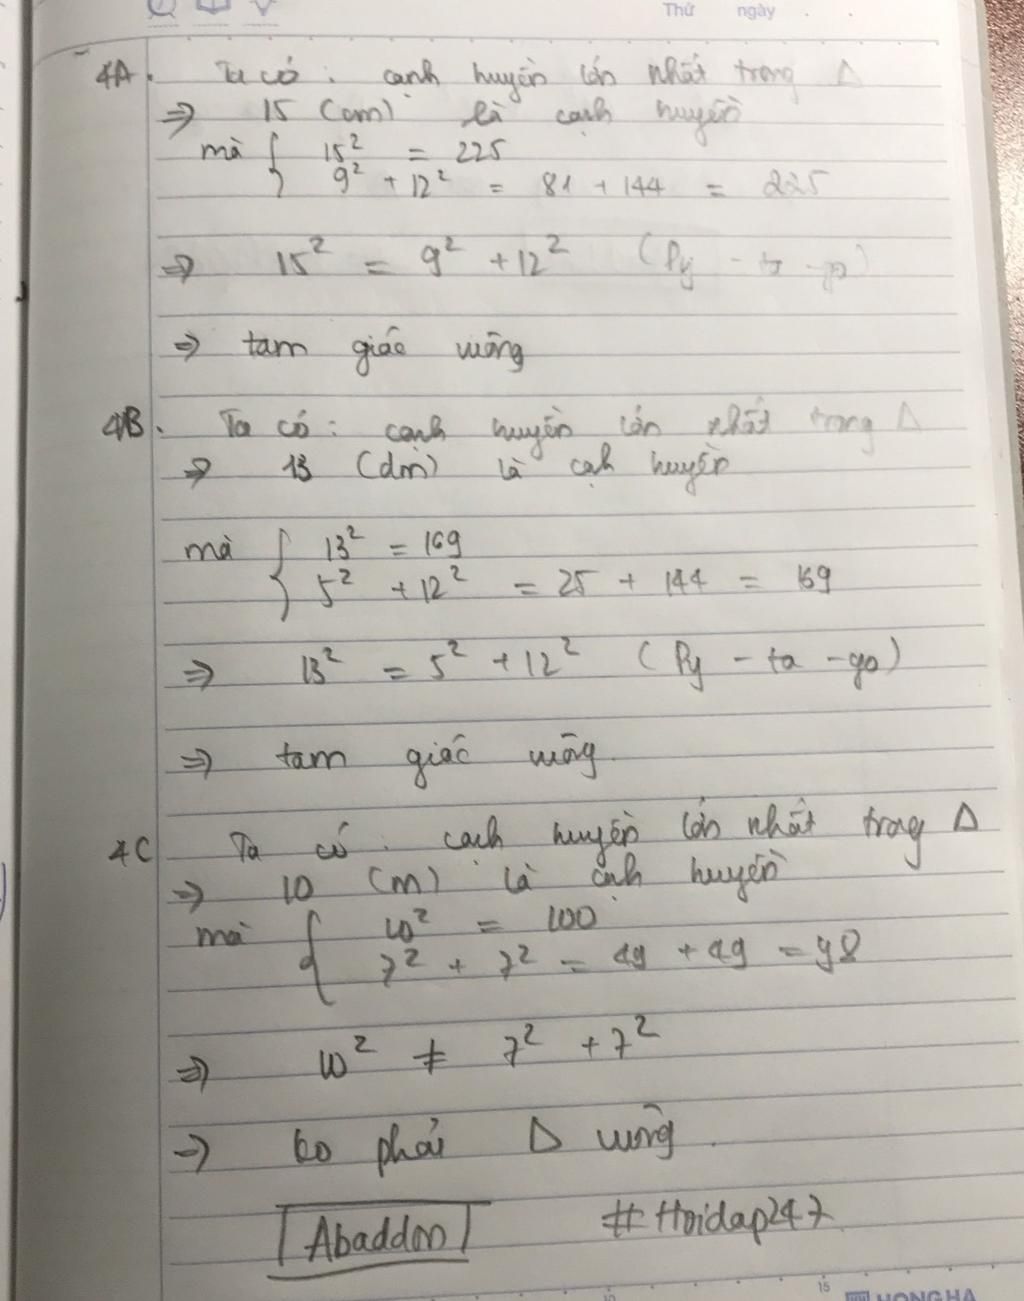 Thứ ngày
4A. Ta có: cạnh huyền lớn nhất trong Δ
⇒ 15 (cm) là cạnh huyền
mà { 15² = 225
9² + 12² = 81 + 144 = 225
⇒ 15² = 9² + 12² (Py - ta - go)
⇒ tam giác vuông
4B. Ta có: cạnh huyền lớn nhất trong Δ
⇒ 13 (dm) là cạh huyền
mà { 13² = 169
5² + 12² = 25 + 144 = 169
⇒ 13² = 5² + 12² (Py - ta - go)
⇒ tam giác vuông.
4C Ta có: cạnh huyền lớn nhất trong Δ
⇒ 10 (m) là cạnh huyền
mà { 10² = 100
7² + 7² = 49 + 49 = 98
⇒ 10² ≠ 7² + 7²
⇒ ko phải Δ vuông.
Abaddon #Hoidap247
15
HONG HA